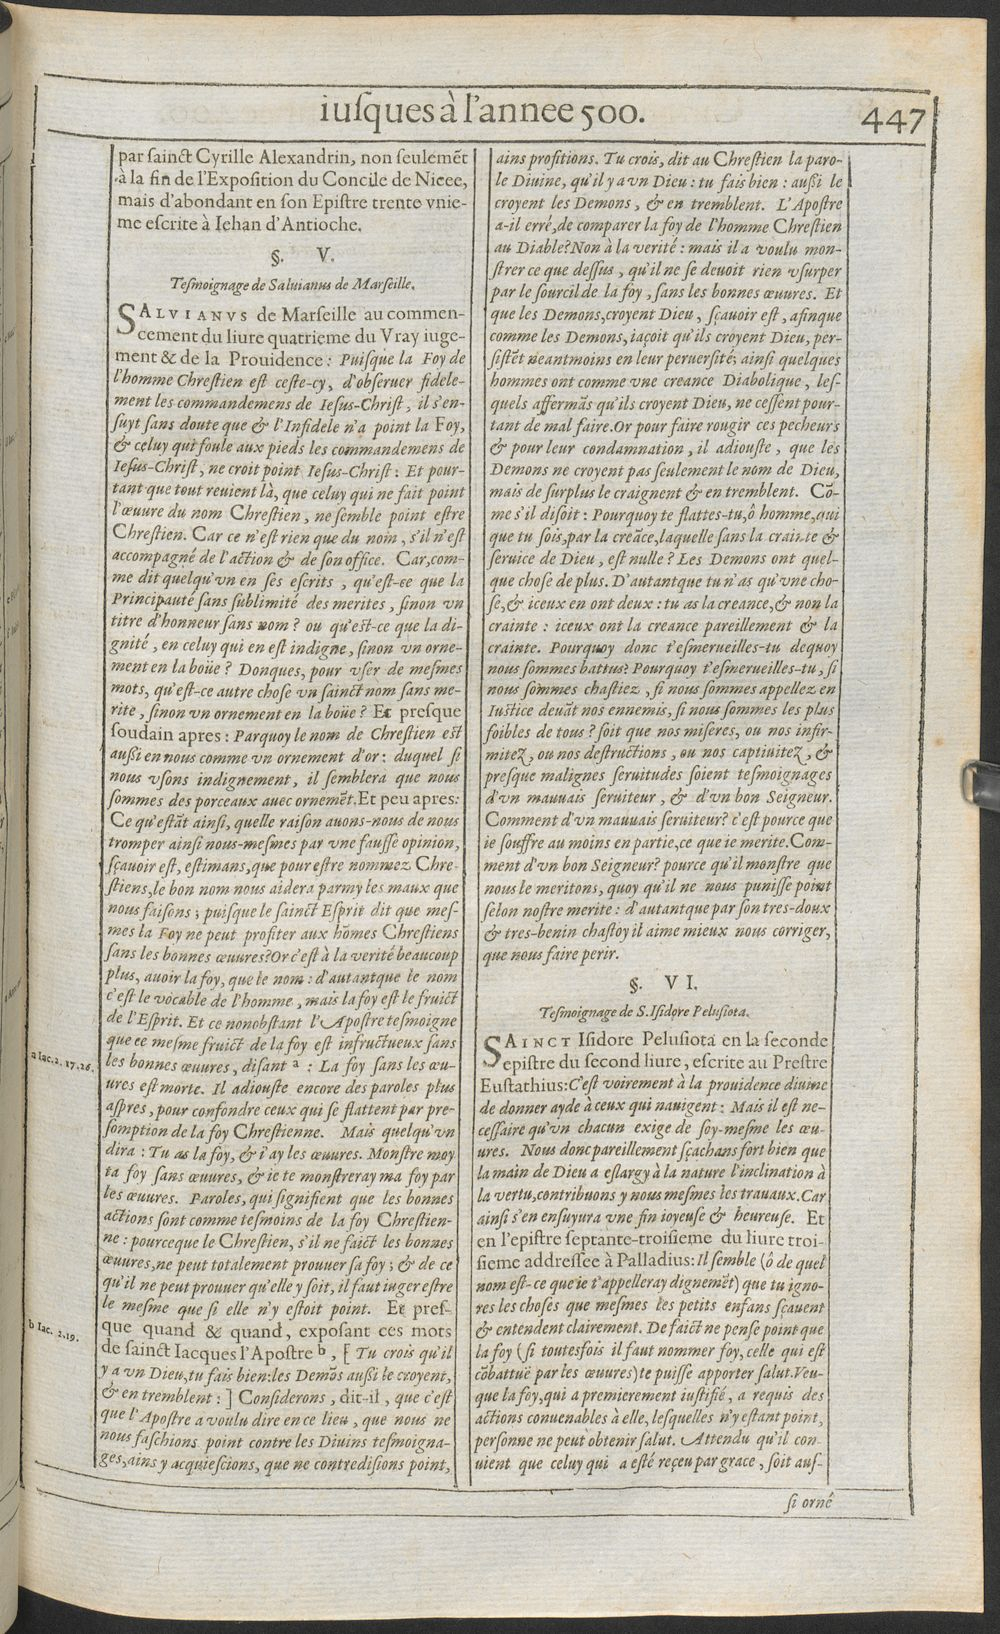 iuſques à l'annee 500.
447
par ſainct Cyrille Alexandrin, non ſeulemēt
à la fin de l'Expoſition du Concile de Nicee,
mais d'abondant en ſon Epiſtre trente vnie-
me eſcrite à Iehan d'Antioche.
§. V.
Teſmoignage de Saluianus de Marſeille.
SALVIANVS de Marſeille au commen-
cement du liure quatrieme du Vray iuge-
ment & de la Prouidence: Puiſque la Foy de
l'homme Chreſtien eſt ceſte-cy, d'obſeruer fidele-
ment les commandemens de Ieſus-Chriſt, il s'en-
ſuyt ſans doute que & l'Infidele n'a point la Foy,
& celuy qui foule aux pieds les commandemens de
Ieſus-Chriſt, ne croit point Ieſus-Chriſt: Et pour-
tant que tout reuient là, que celuy qui ne fait point
l'œuure du nom Chreſtien, ne ſemble point eſtre
Chreſtien. Car ce n'eſt rien que du nom, s'il n'eſt
accompagné de l'action & de ſon office. Car, com-
me dit quelqu'vn en ſes eſcrits, qu'eſt-ce que la
Principauté ſans ſublimité des merites, ſinon vn
titre d'honneur ſans nom? ou qu'eſt-ce que la di-
gnité, en celuy qui en eſt indigne, ſinon vn orne-
ment en la boüe? Donques, pour vſer de meſmes
mots, qu'eſt-ce autre choſe vn ſainct nom ſans me-
rite, ſinon vn ornement en la boüe? Et preſque
ſoudain apres: Parquoy le nom de Chreſtien eſt
auſsi en nous comme vn ornement d'or: duquel ſi
nous vſons indignement, il ſemblera que nous
ſommes des porceaux auec ornemēt. Et peu apres:
Ce qu'eſtāt ainſi, quelle raiſon auons-nous de nous
tromper ainſi nous-meſmes par vne fauſſe opinion,
ſçauoir eſt, eſtimans, que pour eſtre nommez Chre-
ſtiens, le bon nom nous aidera parmy les maux que
nous faiſons; puiſque le ſainct Eſprit dit que meſ-
mes la Foy ne peut profiter aux hōmes Chreſtiens
ſans les bonnes œuures? Or c'eſt à la verité beaucoup
plus, auoir la foy, que le nom: d'autant que le nom
c'eſt le vocable de l'homme, mais la foy eſt le fruict
de l'Eſprit. Et ce nonobſtant l'Apoſtre teſmoigne
que ce meſme fruict de la foy eſt infructueux ſans
les bonnes œuures, diſant a : La foy ſans les œu-
ures eſt morte. Il adiouſte encore des paroles plus
aſpres, pour confondre ceux qui ſe flattent par pre-
ſomption de la foy Chreſtienne. Mais quelqu'vn
dira: Tu as la foy, & i'ay les œuures. Monſtre moy
ta foy ſans œuures, & ie te monſtreray ma foy par
les œuures. Paroles, qui ſignifient que les bonnes
actions ſont comme teſmoins de la foy Chreſtien-
ne: pource que le Chreſtien, s'il ne faict les bonnes
œuures, ne peut totalement prouuer ſa foy; & de ce
qu'il ne peut prouuer qu'elle y ſoit, il faut iuger eſtre
le meſme que ſi elle n'y eſtoit point. Et preſ-
que quand & quand, expoſant ces mots
de ſainct Iacques l'Apoſtre b, [Tu crois qu'il
y a vn Dieu, tu fais bien: les Demōs auſsi le croyent,
& en tremblent:] Conſiderons, dit-il, que c'eſt
que l'Apoſtre a voulu dire en ce lieu, que nous ne
nous faſchions point contre les Diuins teſmoigna-
ges, ains y acquieſcions, que ne contrediſions point,
a Iac. 2. 17. 26.
b Iac. 2. 19.
ains profitions. Tu crois, dit au Chreſtien la paro-
le Diuine, qu'il y a vn Dieu: tu fais bien: auſsi le
croyent les Demons, & en tremblent. L'Apoſtre
a-il erré, de comparer la foy de l'homme Chreſtien
au Diable? Non à la verité: mais il a voulu mon-
ſtrer ce que deſſus, qu'il ne ſe deuoit rien vſurper
par le ſourcil de la foy, ſans les bonnes œuures. Et
que les Demons, croyent Dieu, ſçauoir eſt, afin que
comme les Demons, iaçoit qu'ils croyent Dieu, per-
ſiſtēt neantmoins en leur peruerſité; ainſi quelques
hommes ont comme vne creance Diabolique, leſ-
quels affermās qu'ils croyent Dieu, ne ceſſent pour-
tant de mal faire. Or pour faire rougir ces pecheurs
& pour leur condamnation, il adiouſte, que les
Demons ne croyent pas ſeulement le nom de Dieu,
mais de ſurplus le craignent & en tremblent. Cō-
me s'il diſoit: Pourquoy te flattes-tu, ô homme, qui
que tu ſois, par la creāce, laquelle ſans la crainte &
ſeruice de Dieu, eſt nulle? Les Demons ont quel-
que choſe de plus. D'autant que tu n'as qu'vne cho-
ſe, & iceux en ont deux: tu as la creance, & non la
crainte: iceux ont la creance pareillement & la
crainte. Pourquoy donc t'eſmerueilles-tu dequoy
nous ſommes battus? Pourquoy t'eſmerueilles-tu, ſi
nous ſommes chaſtiez, ſi nous ſommes appellez en
Iuſtice deuāt nos ennemis, ſi nous ſommes les plus
foibles de tous? ſoit que nos miſeres, ou nos infir-
mitez, ou nos deſtructions, ou nos captiuitez, &
preſque malignes ſeruitudes ſoient teſmoignages
d'vn mauuais ſeruiteur, & d'vn bon Seigneur.
Comment d'vn mauuais ſeruiteur? c'eſt pource que
ie ſouffre au moins en partie, ce que ie merite. Com-
ment d'vn bon Seigneur? pource qu'il monſtre que
nous le meritons, quoy qu'il ne nous puniſſe point
ſelon noſtre merite: d'autant que par ſon tres-doux
& tres-benin chaſtoy il aime mieux nous corriger,
que nous faire perir.
§. VI.
Teſmoignage de S. Iſidore Peluſiota.
SAINCT Iſidore Peluſiota en la ſeconde
epiſtre du ſecond liure, eſcrite au Preſtre
Euſtathius: C'eſt voirement à la prouidence diuine
de donner ayde à ceux qui nauigent: Mais il eſt ne-
ceſſaire qu'vn chacun exige de ſoy-meſme les œu-
ures. Nous donc pareillement ſçachans fort bien que
la main de Dieu a eſlargy à la nature l'inclination à
la vertu, contribuons y nous meſmes les trauaux. Car
ainſi s'en enſuyura vne fin ioyeuſe & heureuſe. Et
en l'epiſtre ſeptante-troiſieme du liure troi-
ſieme addreſſee à Palladius: Il ſemble (ô de quel
nom eſt-ce que ie t'appelleray dignemēt) que tu igno-
res les choſes que meſmes les petits enfans ſçauent
& entendent clairement. De faict ne penſe point que
la foy (ſi toutesfois il faut nommer foy, celle qui eſt
cōbattuë par les œuures) te puiſſe apporter ſalut. Veu-
que la foy, qui a premierement iuſtifié, a requis des
actions conuenables à elle, leſquelles n'y eſtant point,
perſonne ne peut obtenir ſalut. Attendu qu'il con-
uient que celuy qui a eſté reçeu par grace, ſoit auſ-
ſi orné